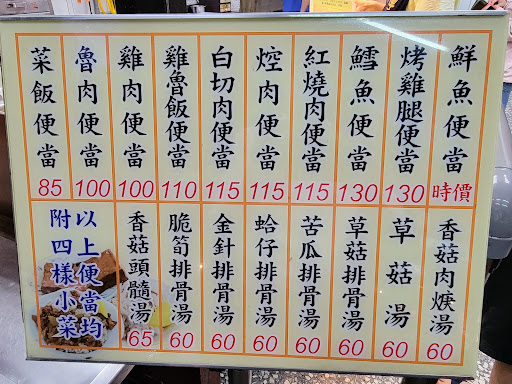 鮮魚便當 時價
烤雞腿便當 130
鱈魚便當 130
紅燒肉便當 115
焢肉便當 115
白切肉便當 115
雞魯飯便當 110
雞肉便當 100
魯肉便當 100
菜飯便當 85
香菇肉焿湯 60
草菇湯 60
草菇排骨湯 60
苦瓜排骨湯 60
蛤仔排骨湯 60
金針排骨湯 60
脆筍排骨湯 60
香菇頭髓湯 65
以上便當均
附四樣小菜